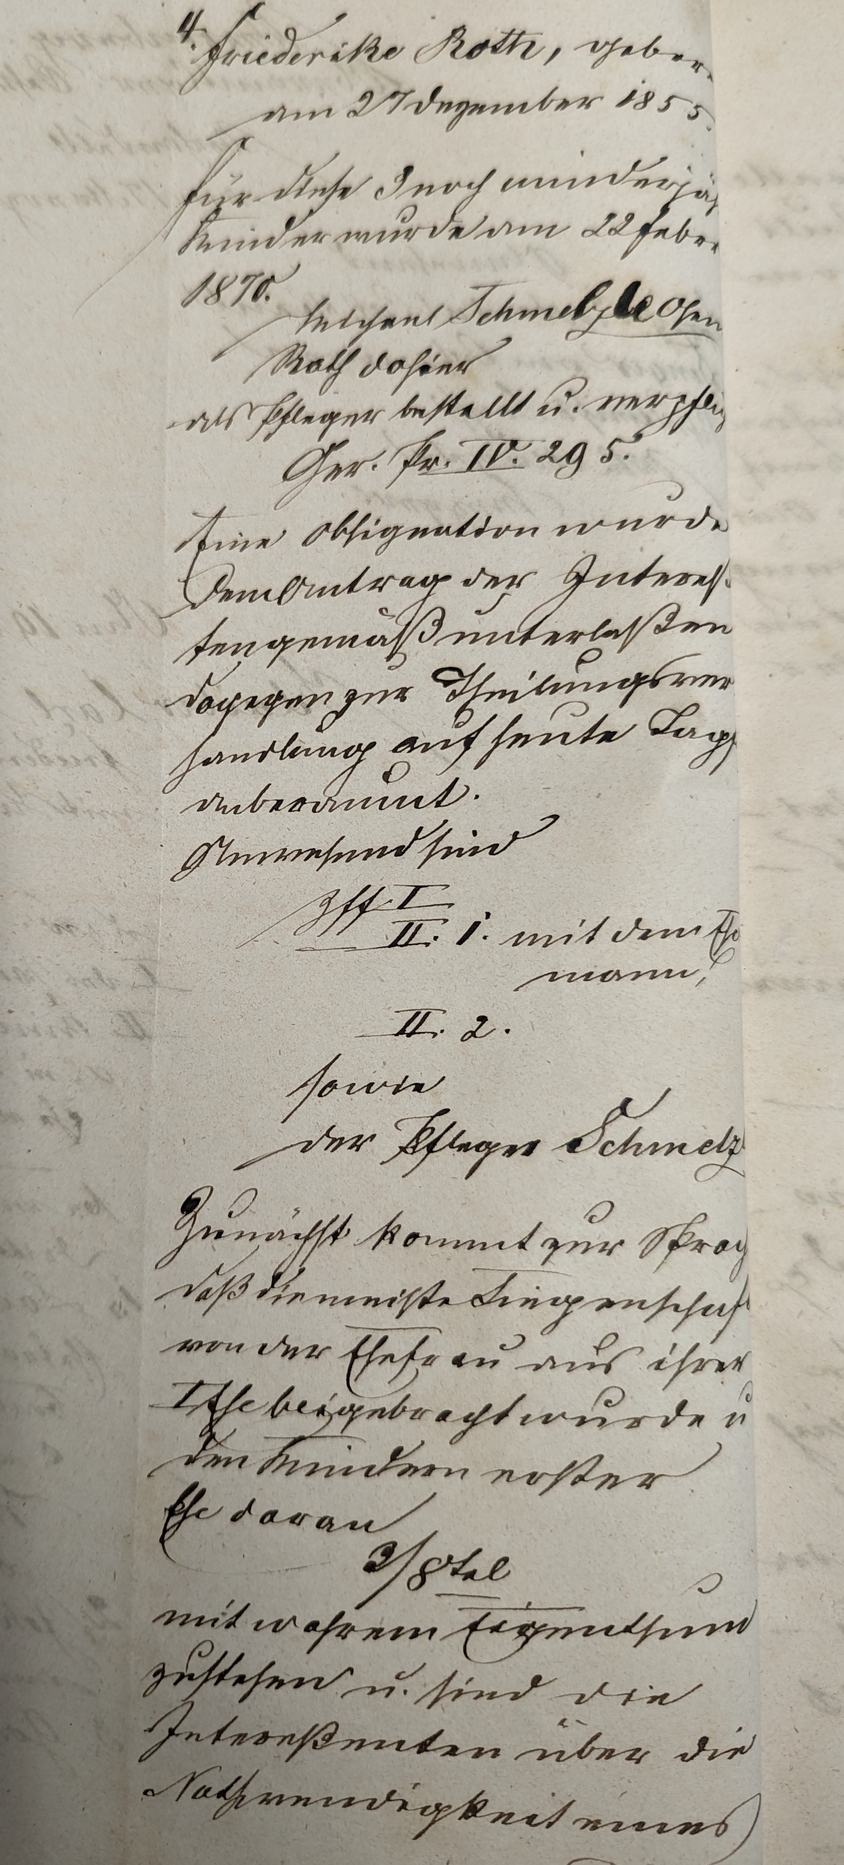 4. Friederike Roth, gebor
am 27 Dezember 1855.
Für diese 3 noch minderjäh
Kinder wurde am 22 Febr
1870.
Michael Schmelzle
Roth dahier
als Pfleger bestellt u. verpfli
Ger. Pr. IV. 295.
Eine Obsignation wurde
dem Antrag der Interess
ten gemäß unterlaßen
dagegen zur Theilungsver
handlung auf heute Tag
anberaumt.
Anwesend sind
Ziff. I
II. 1. mit dem Ehe
mann,
II. 2.
sowie
der Pfleger Schmelz
Zunächst kommt zur Sprach
daß die meiste Liegenschaf
von der Ehefrau aus ihrer
I Ehe beigebracht wurde u
den Kindern erster
Ehe daran
3/8tel
mit wahrem Eigenthum
zustehen u. sind die
Intereßenten über die
Nothwendigkeit eines